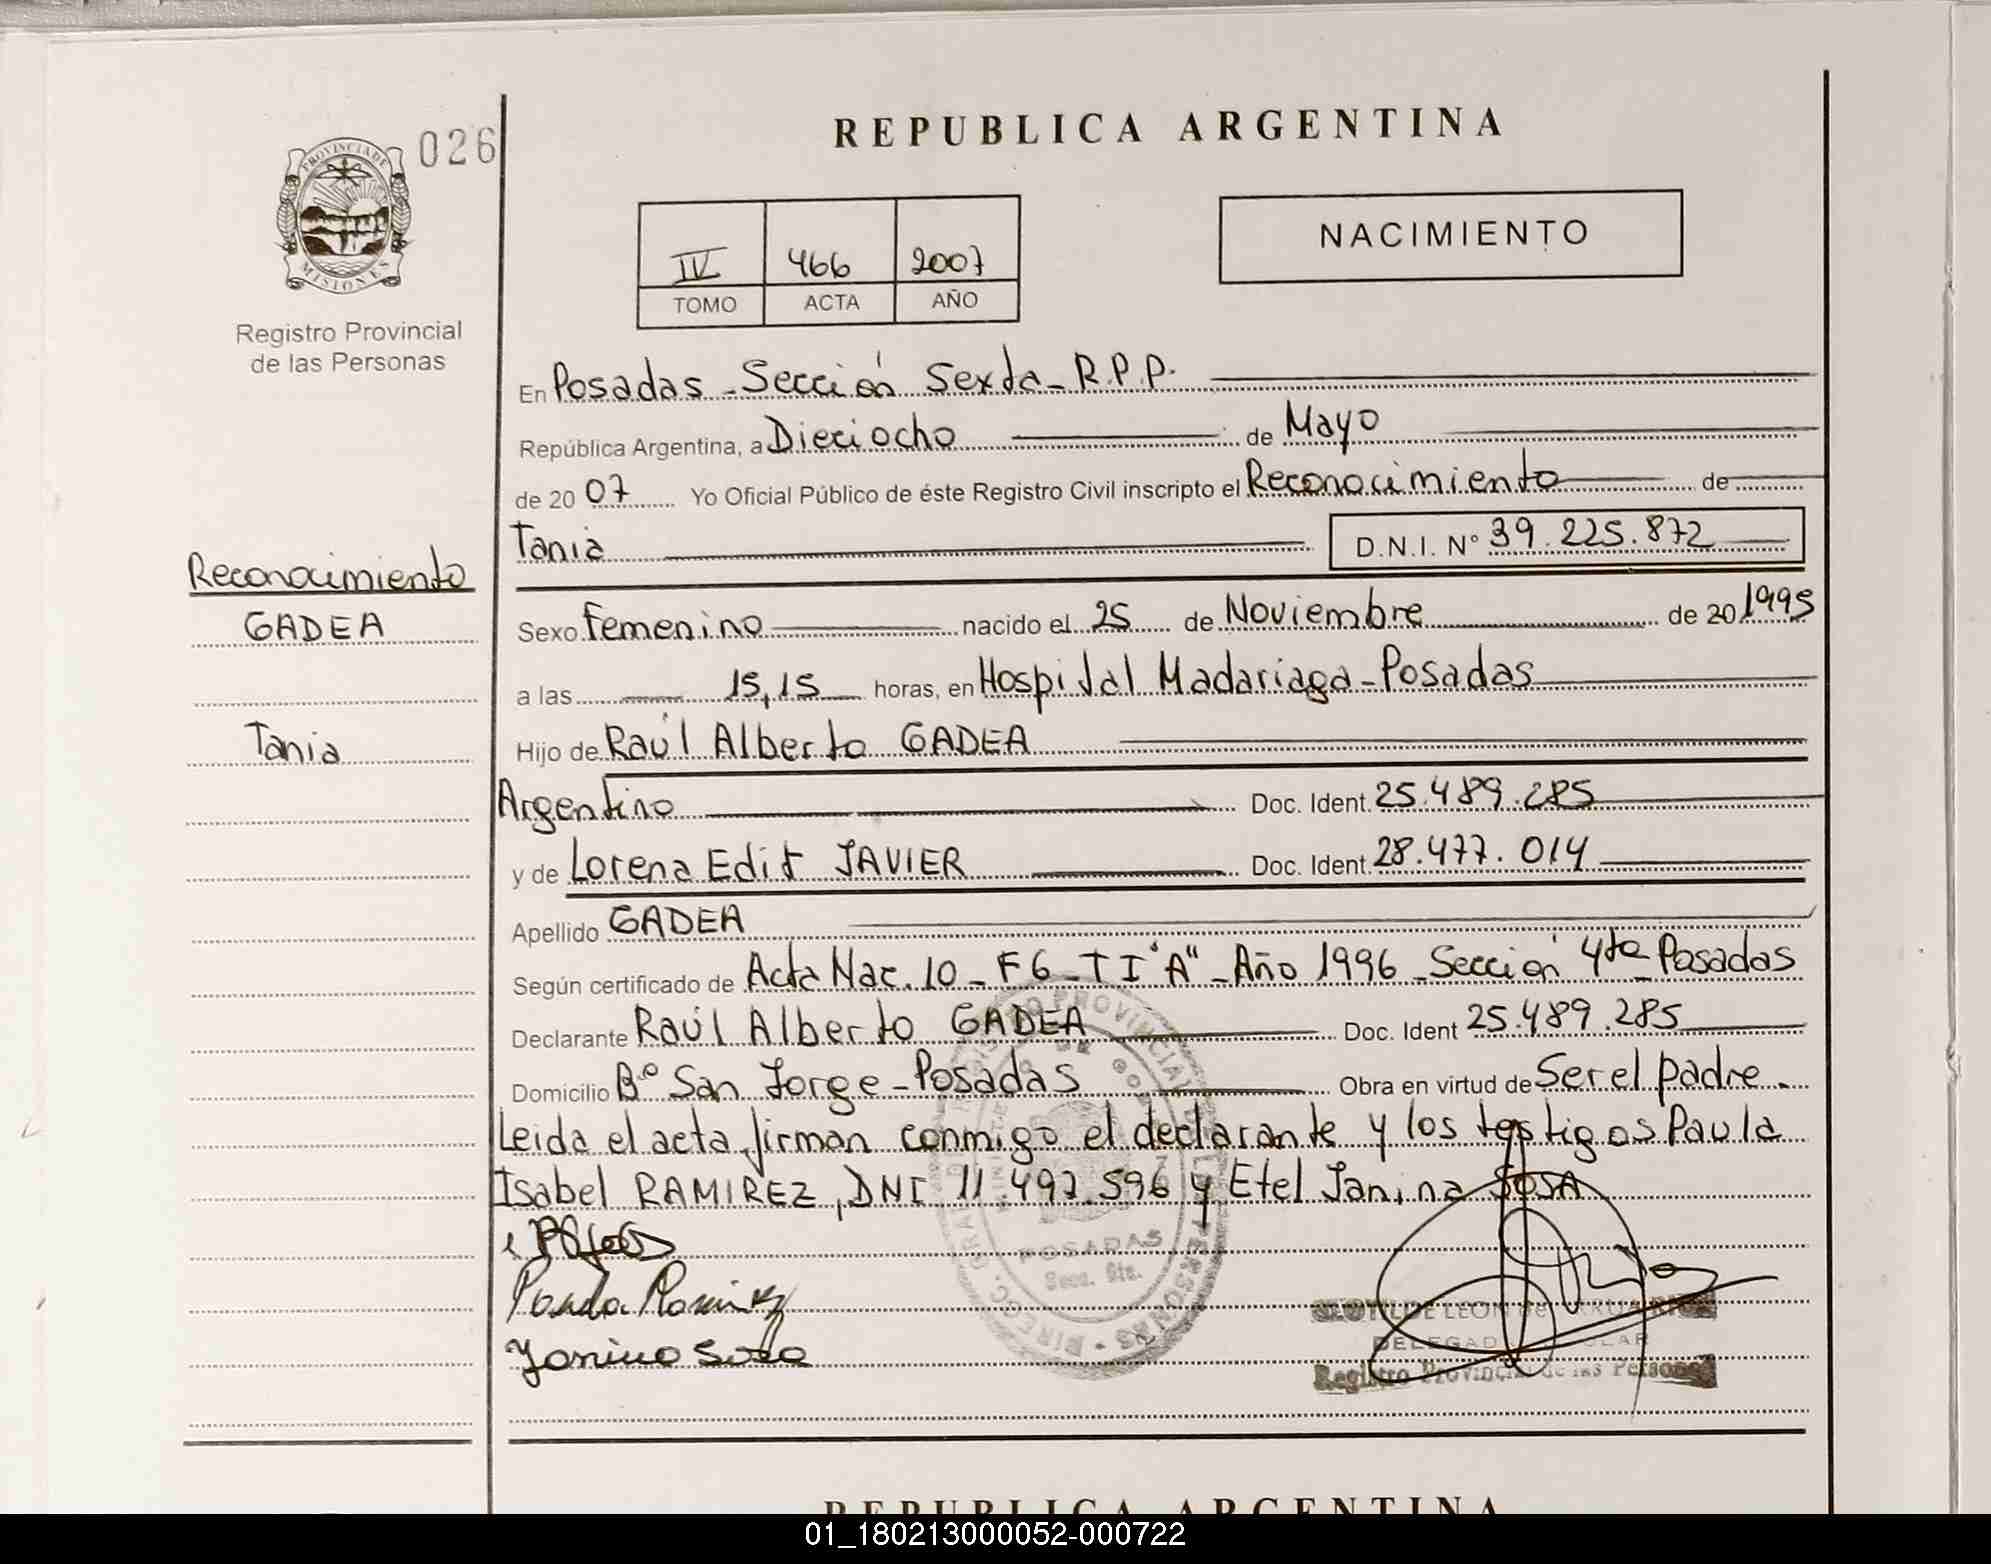 026
REPUBLICA ARGENTINA
PROVINCIA DE
MISIONES
Registro Provincial
de las Personas
IV 466 2007
TOMO ACTA AÑO
NACIMIENTO
En Posadas - Sección Sexta - R.P.P.
República Argentina, a Dieciocho de Mayo
de 20 07 Yo Oficial Público de éste Registro Civil inscripto el Reconocimiento de
Tania D.N.I. N° 39.225.872
Reconocimiento
GADEA
Tania
Sexo Femenino nacido el 25 de Noviembre de 20 1995
a las 15,15 horas, en Hospital Madariaga - Posadas
Hijo de Raúl Alberto GADEA
Argentino Doc. Ident. 25.489.285
y de Lorena Edit JAVIER Doc. Ident. 28.477.014
Apellido GADEA
Según certificado de Acta Nac. 10 - F6 - T I "A" - Año 1996 - Sección 4ta Posadas
Declarante Raúl Alberto GADEA Doc. Ident 25.489.285
Domicilio B° San Jorge - Posadas Obra en virtud de Ser el padre.
Leida el acta, firman conmigo el declarante y los testigos Paula
Isabel RAMIREZ, DNI 11.497.596 y Etel Janina SOSA
POSADAS
Secc. 6ta.
Paula Ramirez
Janina Sosa
LEON de
Registro Provincial de las Personas
REPUBLICA ARGENTINA
01_180213000052-000722